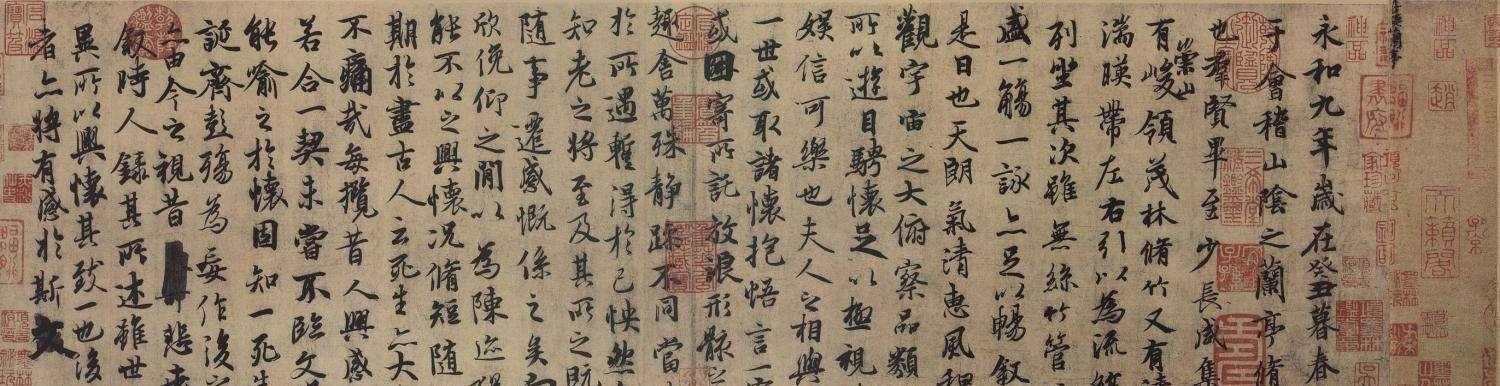 永和九年歲在癸丑暮春
于會稽山陰之蘭亭脩
也羣賢畢至少長咸集
有崇山峻領茂林脩竹又有清
湍暎帶左右引以為流
列坐其次雖無絲竹管
盛一觴一詠亦足以暢敘
是日也天朗氣清惠風
觀宇宙之大俯察品類
所以遊目騁懷足以極視
娛信可樂也夫人之相與
一世或取諸懷抱悟言一
或因寄所託放浪形骸之
趣舍萬殊靜躁不同當
於所遇蹔得於己怏然
知老之將至及其所之既
隨事遷感慨係之矣向
欣俛仰之閒以為陳迹
能不以之興懷況脩短隨
期於盡古人云死生亦大
不痛哉每攬昔人興感
若合一契未嘗不臨文
能喻之於懷固知一死生
誕齊彭殤為妄作後
亦由今之視昔悲夫
敘時人錄其所述雖世
異所以興懷其致一也後
者亦將有感於斯文